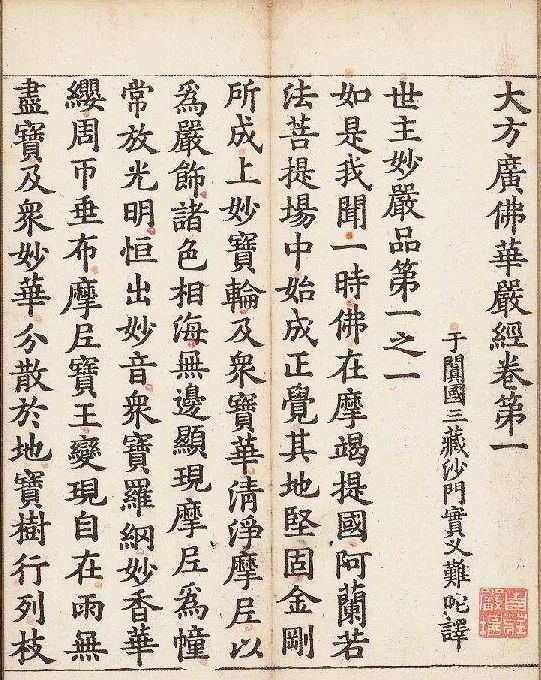 大方廣佛華嚴經卷第一
于闐國三藏沙門實叉難陀譯
世主妙嚴品第一之一
如是我聞一時佛在摩竭提國阿蘭若
法菩提場中始成正覺其地堅固金剛
所成上妙寶輪及眾寶華清淨摩尼以
為嚴飾諸色相海無邊顯現摩尼為幢
常放光明恒出妙音眾寶羅網妙香華
纓周帀垂布摩尼寶王變現自在雨無
盡寶及眾妙華分散於地寶樹行列枝